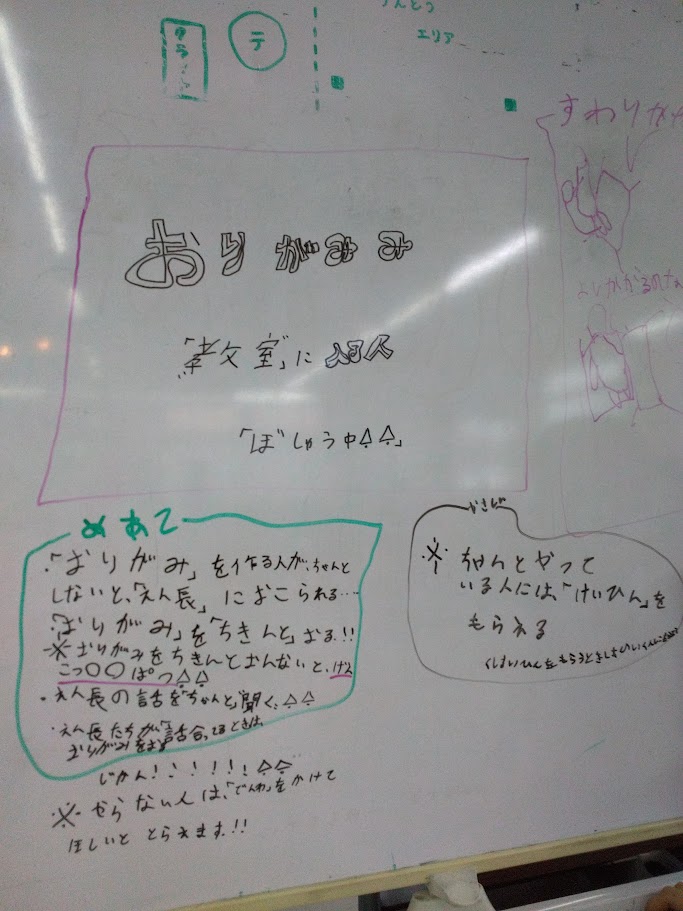 テ
エリア
すわりかた
おりがみ
「教室」に入る人
「ぼしゅう中」
めあて
・「おりがみ」を作る人が、ちゃんと
しないと、「えん長」におこられる…
・「おりがみ」を「ちきんと」おる!!
※おりがみをちきんとおんないと、
こつ〇〇ぱつ
・えん長の話を「ちゃんと」聞く、
・えん長たちが、「話合」
おりがみをおす
じかん!!!!!!
※やらない人は、「でんわ」をかけて
ほしいととらえます!!
※ちゃんとやって
いる人には、「けいひん」を
もらえる